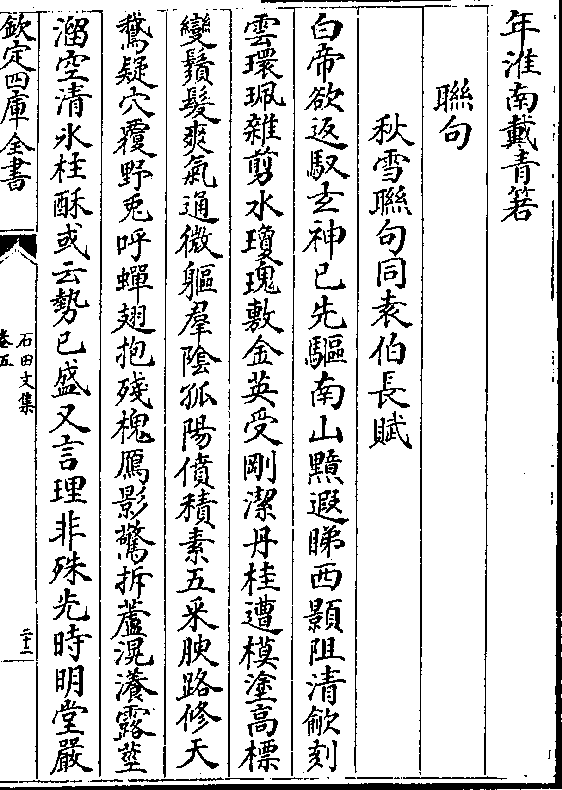 年淮南戴青箬
聯句
秋雪聯句同袁伯長賦
白帝欲返馭玄神已先驅南山黯遐睇西顥阻清歈刻
雲環珮雜剪水瓊瑰敷金英受剛潔丹桂遭模塗高標
變鬚髮爽氣通微軀羣陰孤陽僨積素五采腴路修天
鵞疑穴覆野兎呼蟬翅抱殘槐鴈影驚折蘆滉瀁露莖
溜空清氷柱酥或云勢已盛又言理非殊先時明堂嚴
欽定四庫全書
石田文集
卷五
二十二